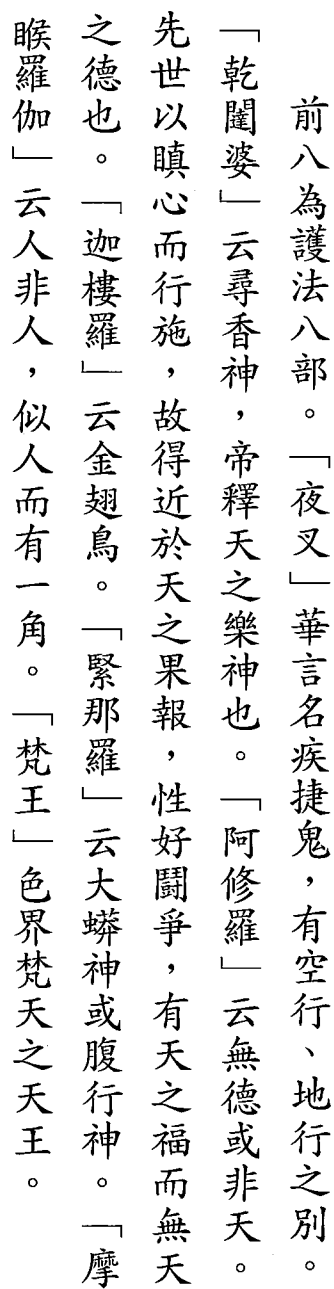 前八為護法八部。「夜叉」華言名疾捷鬼，有空行、地行之別。
「乾闥婆」云尋香神，帝釋天之樂神也。「阿修羅」云無德或非天。
先世以瞋心而行施，故得近於天之果報，性好鬪爭，有天之福而無天
之德也。「迦樓羅」云金翅鳥。「緊那羅」云大蟒神或腹行神。「摩
睺羅伽」云人非人，似人而有一角。「梵王」色界梵天之天王。